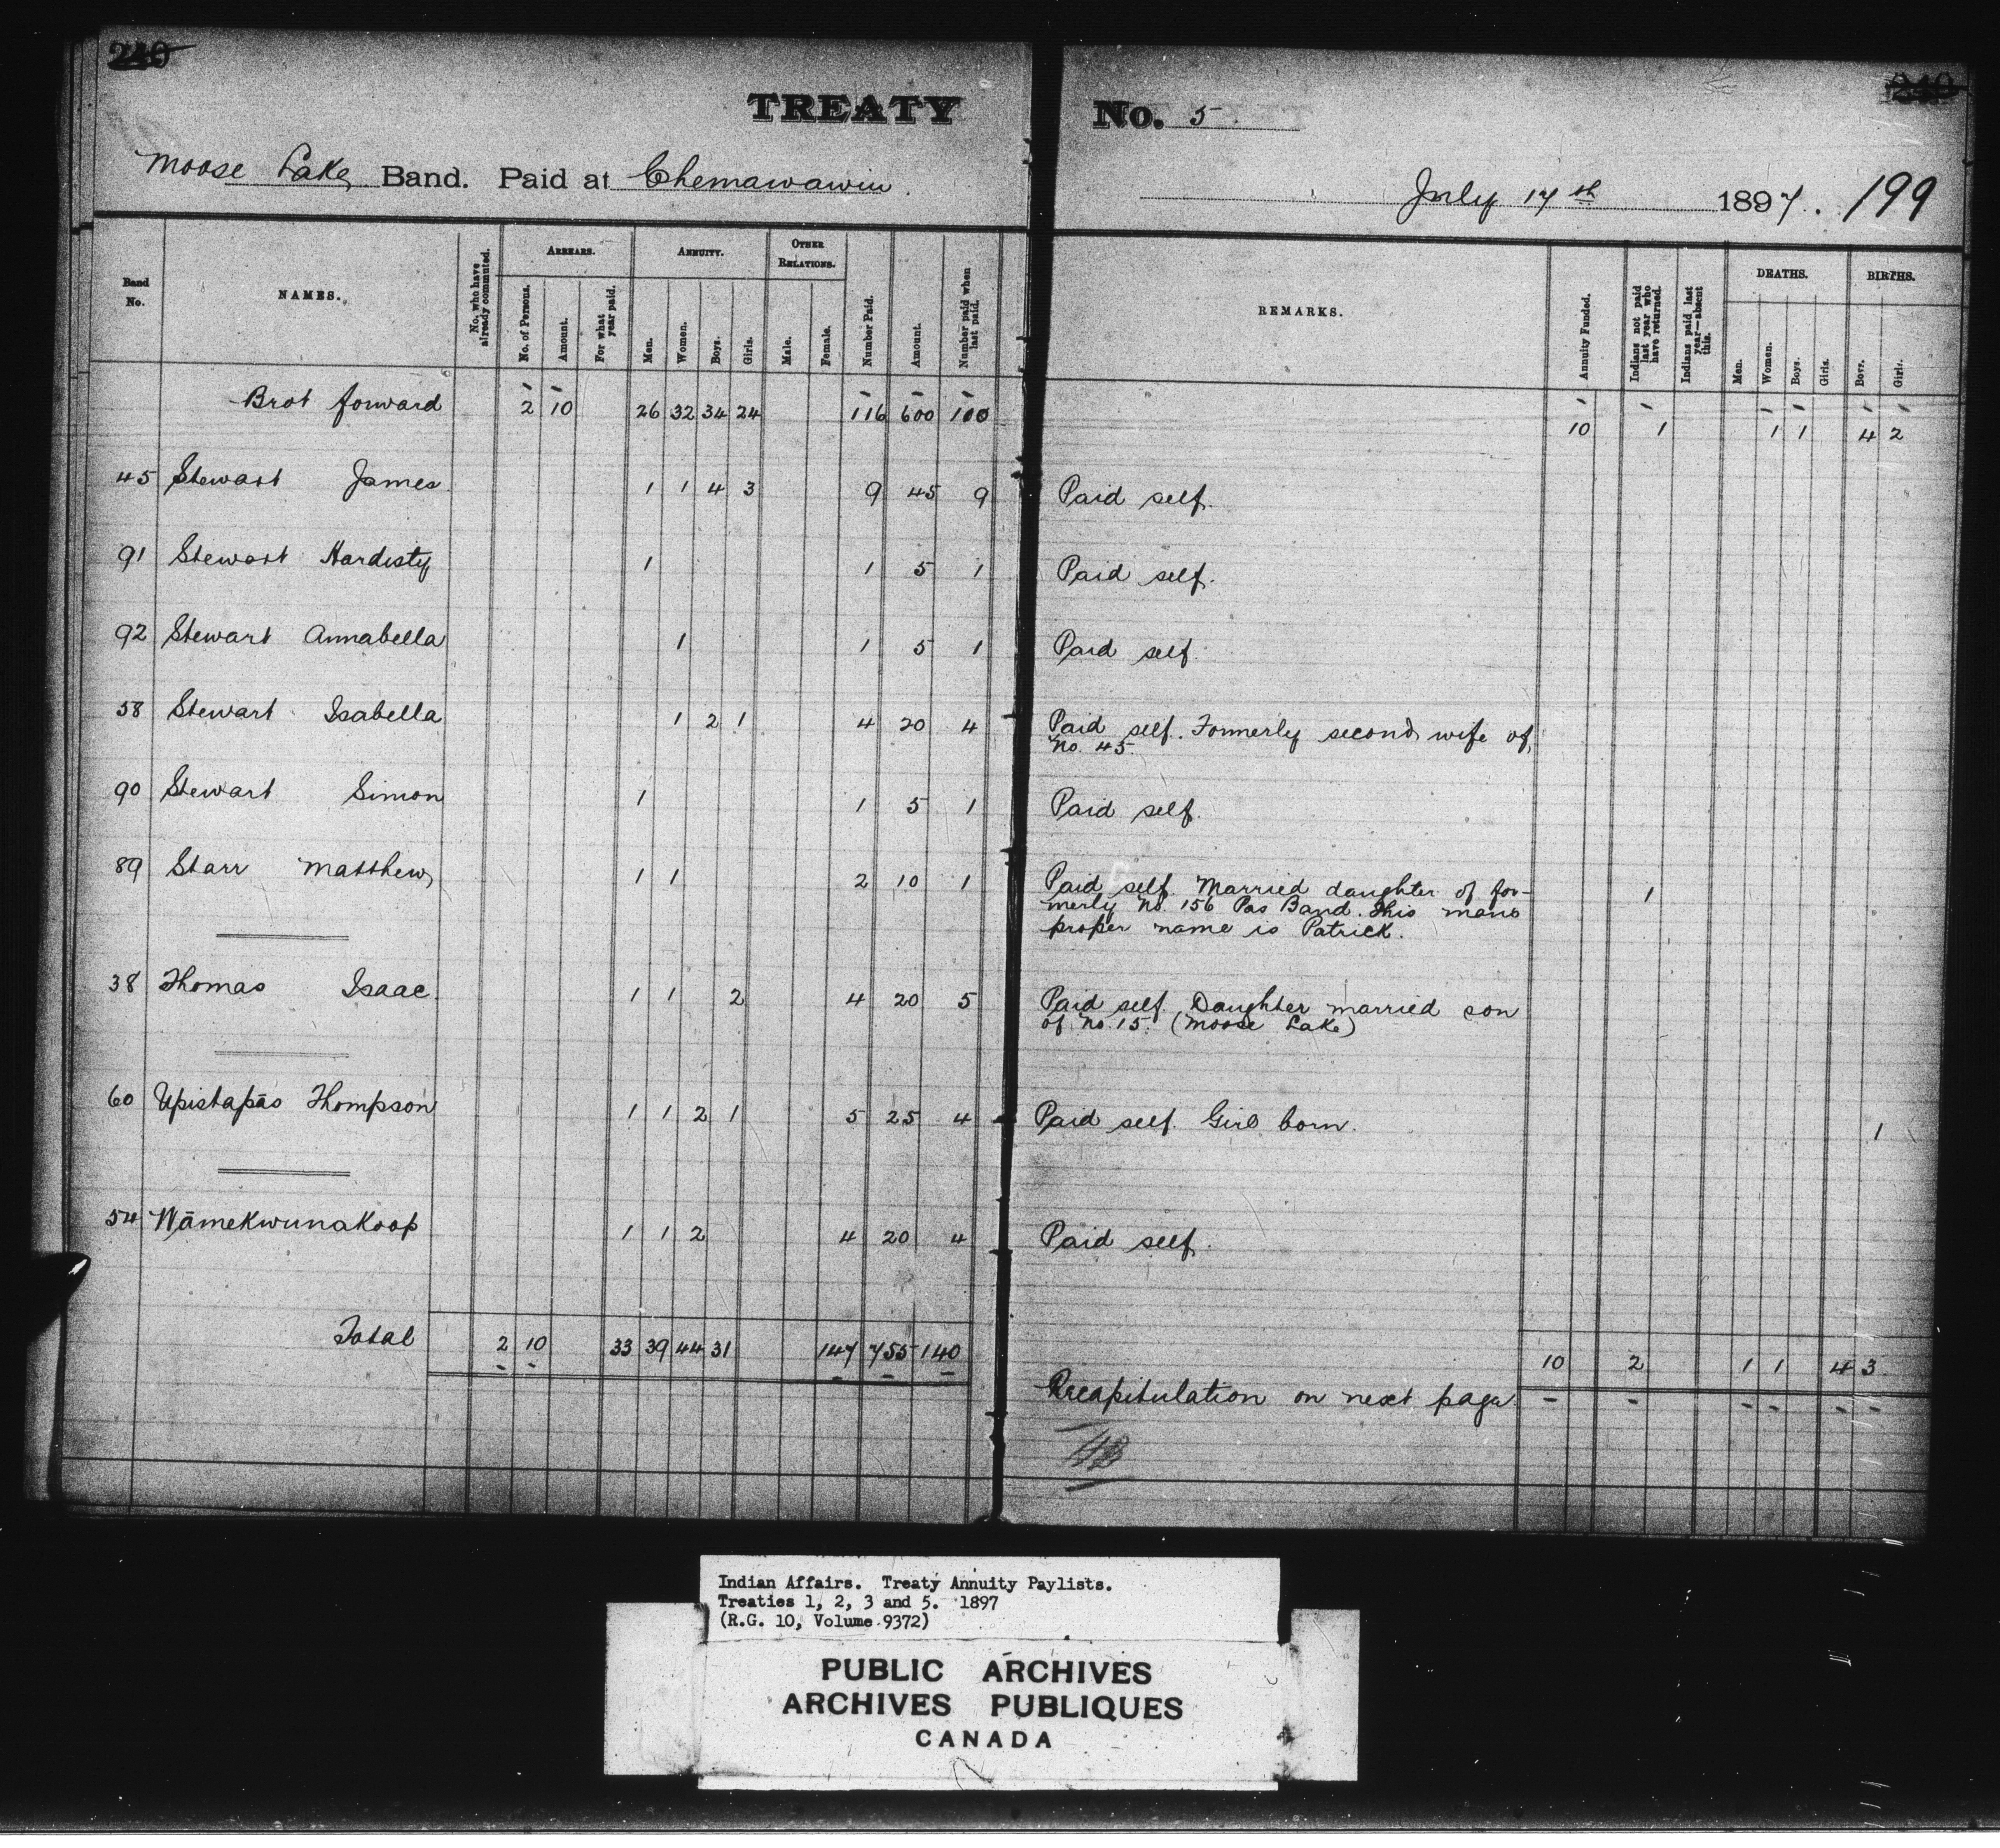 240
240
TREATY No. 5.
Moose Lake Band. Paid at Chemawawin.
July 17th 1897. 199
Band No.
NAMES.
No. who have already commuted.
ARREARS.
No. of Persons.
Amount.
For what year paid.
ANNUITY.
Men.
Women.
Boys.
Girls.
OTHER RELATIONS.
Male.
Female.
Number Paid.
Amount.
Number paid when last paid.
REMARKS.
Annuity Funded.
Indians not paid last year who have returned.
Indians paid last year—absent this.
DEATHS.
Men.
Women.
Boys.
Girls.
BIRTHS.
Boys.
Girls.
Brot forward 2 10 26 32 34 24 116 600 100 10 1 1 1 4 2
45 Stewart James 1 1 4 3 9 45 9 Paid self.
91 Stewart Hardisty 1 1 5 1 Paid self.
92 Stewart Annabella 1 1 5 1 Paid self.
58 Stewart Isabella 1 2 1 4 20 4 Paid self. Formerly second wife of
No. 45.
90 Stewart Simon 1 1 5 1 Paid self.
89 Starr Matthew 1 1 2 10 1 Paid self. Married daughter of for- 1
merly No. 156 Pas Band. This mans
proper name is Patrick.
38 Thomas Isaac. 1 1 2 4 20 5 Paid self. Daughter married son
of No. 15. (Moose Lake)
60 Upistapās Thompson 1 1 2 1 5 25 4 Paid self. Girl born. 1
54 Wāmekwunakoop 1 1 2 4 20 4 Paid self.
Total 2 10 33 39 44 31 147 755 140 10 2 1 1 4 3
Recapitulation on next page
Indian Affairs. Treaty Annuity Paylists.
Treaties 1, 2, 3 and 5. 1897
(R.G. 10, Volume 9372)
PUBLIC ARCHIVES
ARCHIVES PUBLIQUES
CANADA